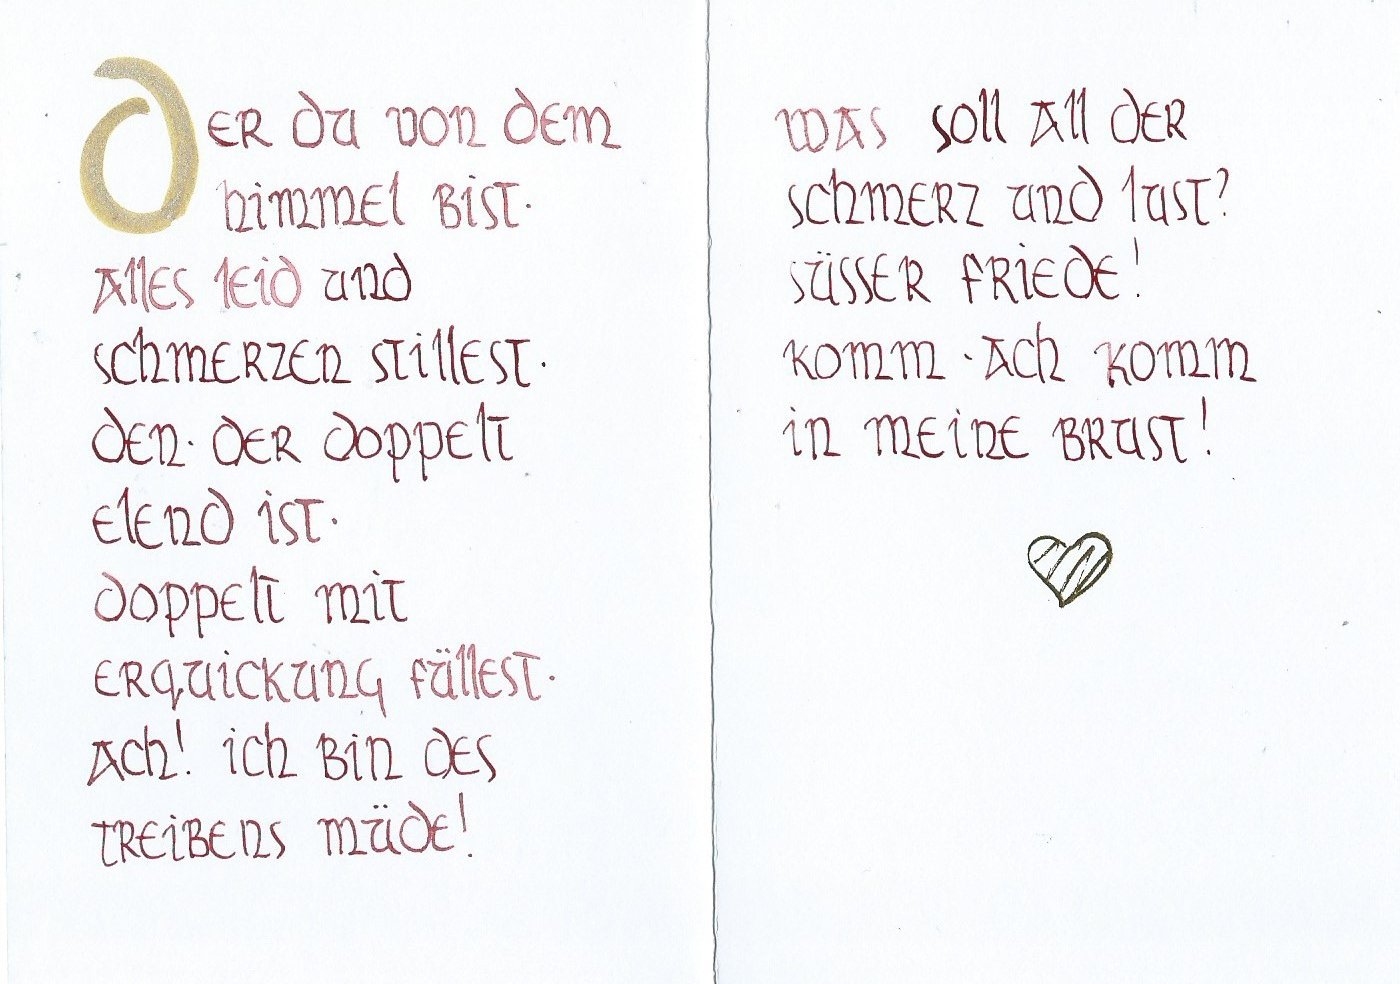 Der du von dem
himmel bist·
Alles leid und
schmerzen stillest·
den· der doppelt
elend ist·
doppelt mit
erquickung füllest·
Ach! ich bin des
treibens müde!
was soll all der
schmerz und lust?
süsser friede!
komm · ach komm
in meine brust!